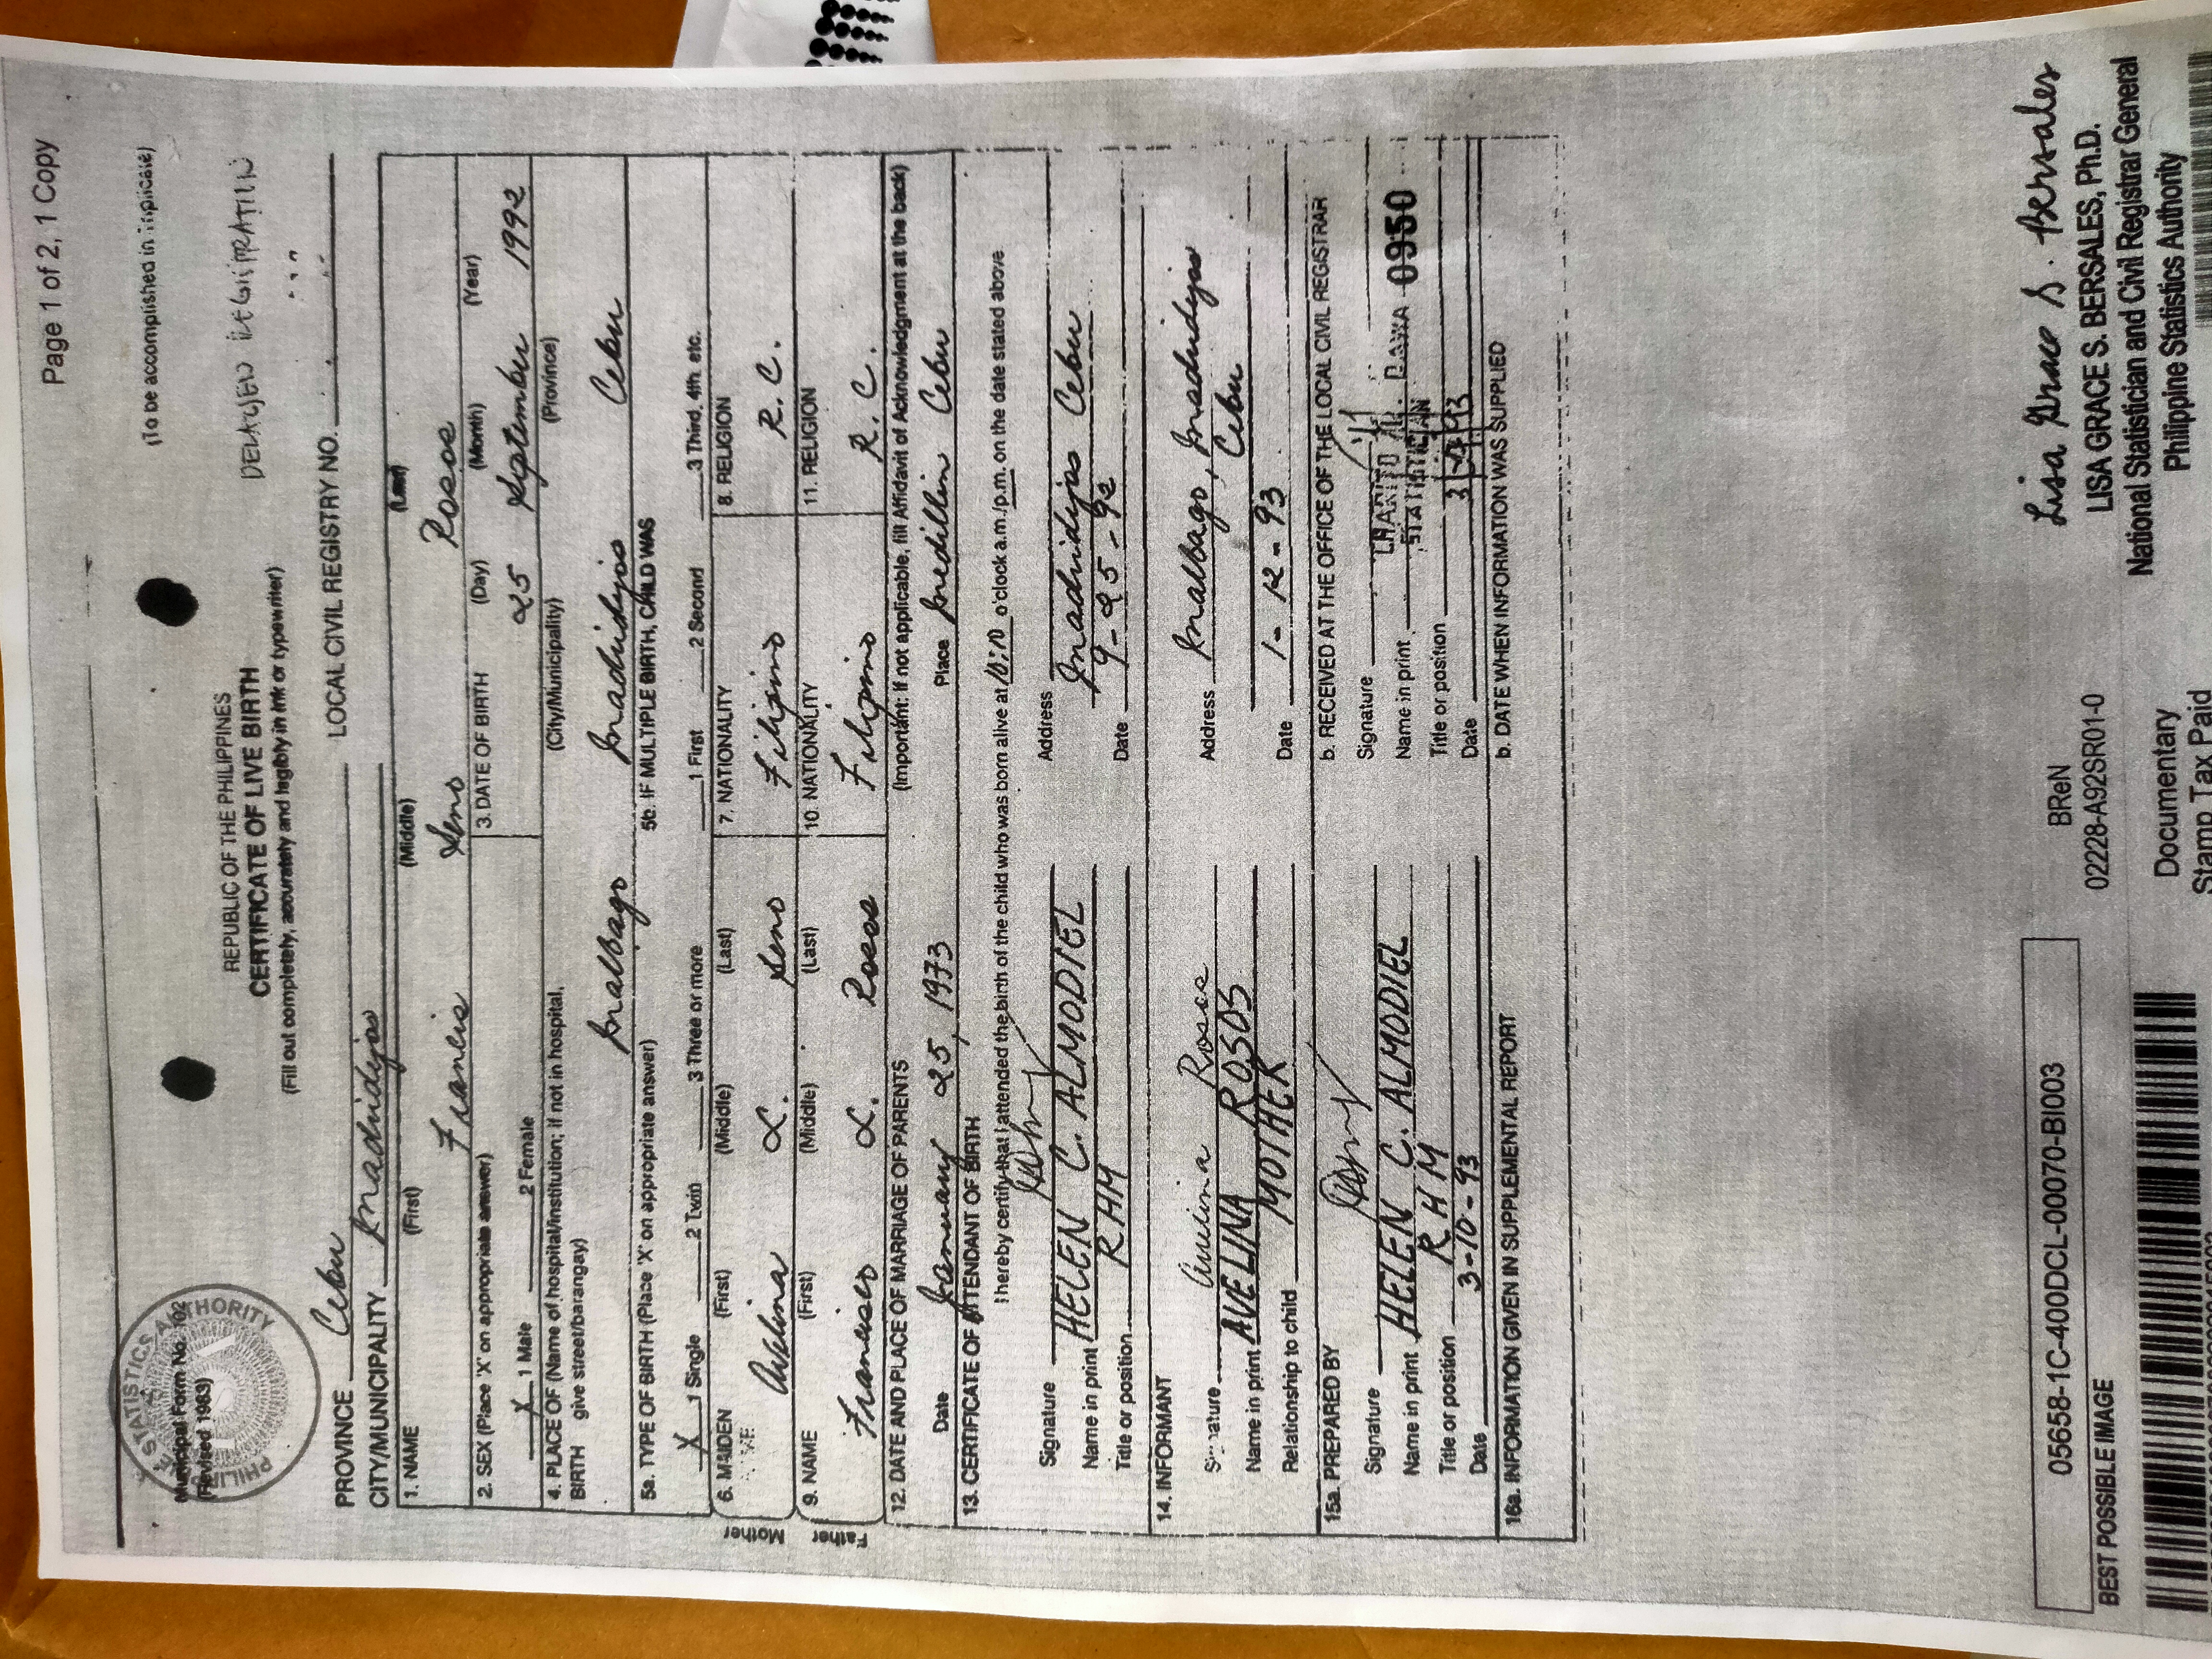 Page 1 of 2, 1 Copy
Municipal Form No. 102
(Revised 1983)
(To be accomplished in triplicate)
REPUBLIC OF THE PHILIPPINES
CERTIFICATE OF LIVE BIRTH
(Fill out completely, accurately and legibly in ink or typewriter)
DELAYED REGISTRATION
PROVINCE Cebu
CITY/MUNICIPALITY Madridejos LOCAL CIVIL REGISTRY NO.
1. NAME (First) (Middle) (Last)
Francis Seno Rosos
2. SEX (Place 'X' on appropriate answer) 3. DATE OF BIRTH (Day) (Month) (Year)
X 1 Male 2 Female 25 September 1992
4. PLACE OF (Name of hospital/institution; if not in hospital, (City/Municipality) (Province)
BIRTH give street/barangay)
Malbago Madridejos Cebu
5a. TYPE OF BIRTH (Place 'X' on appropriate answer) 5b. IF MULTIPLE BIRTH, CHILD WAS
X 1 Single 2 Twin 3 Three or more 1 First 2 Second 3 Third, 4th. etc.
Mother
6. MAIDEN NAME (First) (Middle) (Last) 7. NATIONALITY 8. RELIGION
Avelina L. Seno Filipino R.C.
Father
9. NAME (First) (Middle) (Last) 10. NATIONALITY 11. RELIGION
Francisco L. Rosos Filipino R.C.
12. DATE AND PLACE OF MARRIAGE OF PARENTS (Important: If not applicable, fill Affidavit of Acknowledgment at the back)
Date January 25, 1973 Place Medillin Cebu
13. CERTIFICATE OF ATTENDANT OF BIRTH
I hereby certify that I attended the birth of the child who was born alive at 10:10 o'clock a.m./p.m. on the date stated above
Signature Address Madridejos Cebu
Name in print HELEN C. ALMODIEL
Title or position RHM Date 9-25-92
14. INFORMANT
Signature Avelina Rosos Address Malbago, Madridejos
Name in print AVELINA ROSOS Cebu
Relationship to child MOTHER Date 1-12-93
15a. PREPARED BY b. RECEIVED AT THE OFFICE OF THE LOCAL CIVIL REGISTRAR
Signature Signature
Name in print HELEN C. ALMODIEL Name in print CHARITO 0950
Title or position RHM Title or position STATISTICIAN
Date 3-10-93 Date
16a. INFORMATION GIVEN IN SUPPLEMENTAL REPORT b. DATE WHEN INFORMATION WAS SUPPLIED
05658-1C-400DCL-00070-BI003
BEST POSSIBLE IMAGE
BReN
02228-A92SR01-0
Documentary
Stamp Tax Paid
Lisa Grace S. Bersales
LISA GRACE S. BERSALES, Ph.D.
National Statistician and Civil Registrar General
Philippine Statistics Authority